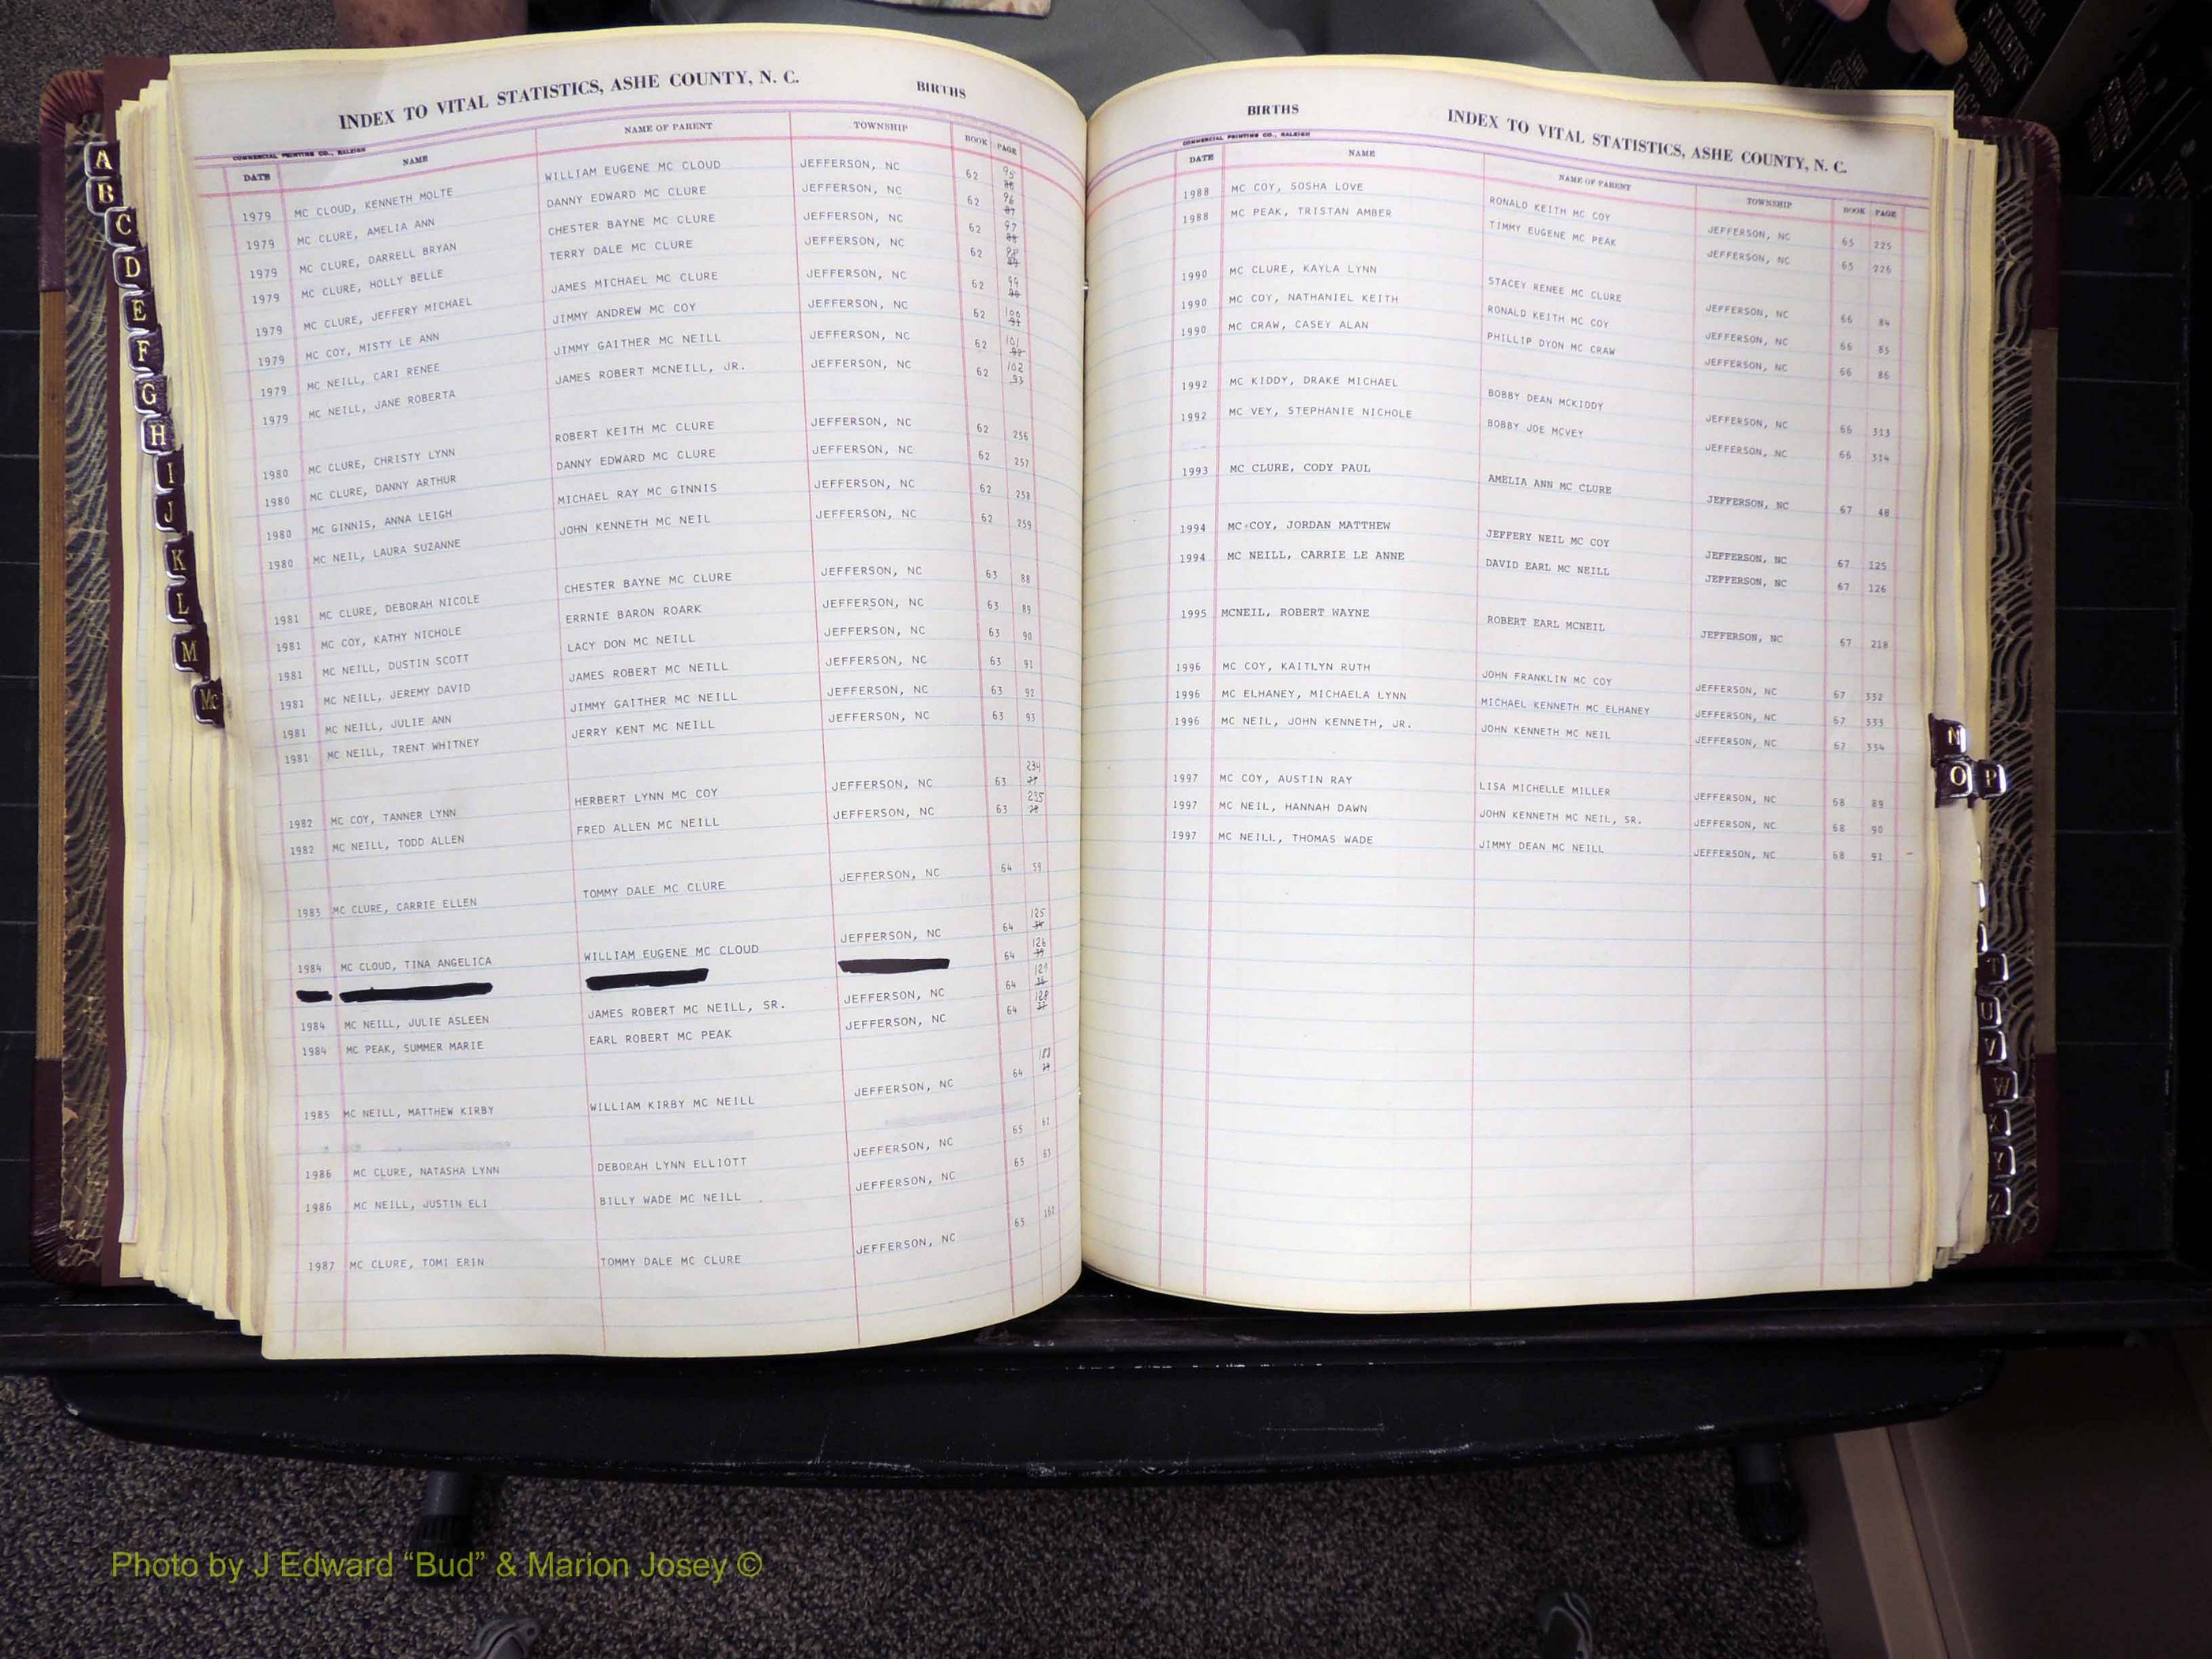 INDEX TO VITAL STATISTICS, ASHE COUNTY, N. C. BIRTHS
COMMERCIAL PRINTING CO., RALEIGH
DATE NAME NAME OF PARENT TOWNSHIP BOOK PAGE
1979 MC CLOUD, KENNETH MOLTE WILLIAM EUGENE MC CLOUD JEFFERSON, NC 62 95
1979 MC CLURE, AMELIA ANN DANNY EDWARD MC CLURE JEFFERSON, NC 62 96
1979 MC CLURE, DARRELL BRYAN CHESTER BAYNE MC CLURE JEFFERSON, NC 62 97
1979 MC CLURE, HOLLY BELLE TERRY DALE MC CLURE JEFFERSON, NC 62 98
1979 MC CLURE, JEFFERY MICHAEL JAMES MICHAEL MC CLURE JEFFERSON, NC 62 99
1979 MC COY, MISTY LE ANN JIMMY ANDREW MC COY JEFFERSON, NC 62 100
1979 MC NEILL, CARI RENEE JIMMY GAITHER MC NEILL JEFFERSON, NC 62 101
1979 MC NEILL, JANE ROBERTA JAMES ROBERT MCNEILL, JR. JEFFERSON, NC 62 102 93
1980 MC CLURE, CHRISTY LYNN ROBERT KEITH MC CLURE JEFFERSON, NC 62 256
1980 MC CLURE, DANNY ARTHUR DANNY EDWARD MC CLURE JEFFERSON, NC 62 257
1980 MC GINNIS, ANNA LEIGH MICHAEL RAY MC GINNIS JEFFERSON, NC 62 258
1980 MC NEIL, LAURA SUZANNE JOHN KENNETH MC NEIL JEFFERSON, NC 62 259
1981 MC CLURE, DEBORAH NICOLE CHESTER BAYNE MC CLURE JEFFERSON, NC 63 88
1981 MC COY, KATHY NICHOLE ERRNIE BARON ROARK JEFFERSON, NC 63 89
1981 MC NEILL, DUSTIN SCOTT LACY DON MC NEILL JEFFERSON, NC 63 90
1981 MC NEILL, JEREMY DAVID JAMES ROBERT MC NEILL JEFFERSON, NC 63 91
1981 MC NEILL, JULIE ANN JIMMY GAITHER MC NEILL JEFFERSON, NC 63 92
1981 MC NEILL, TRENT WHITNEY JERRY KENT MC NEILL JEFFERSON, NC 63 93
1982 MC COY, TANNER LYNN HERBERT LYNN MC COY JEFFERSON, NC 63 234
1982 MC NEILL, TODD ALLEN FRED ALLEN MC NEILL JEFFERSON, NC 63 235
1983 MC CLURE, CARRIE ELLEN TOMMY DALE MC CLURE JEFFERSON, NC 64 59
1984 MC CLOUD, TINA ANGELICA WILLIAM EUGENE MC CLOUD JEFFERSON, NC 64 125
64 126
1984 MC NEILL, JULIE ASLEEN JAMES ROBERT MC NEILL, SR. JEFFERSON, NC 64 127
1984 MC PEAK, SUMMER MARIE EARL ROBERT MC PEAK JEFFERSON, NC 64 128
1985 MC NEILL, MATTHEW KIRBY WILLIAM KIRBY MC NEILL JEFFERSON, NC 64
1986 MC CLURE, NATASHA LYNN DEBORAH LYNN ELLIOTT JEFFERSON, NC 65 62
1986 MC NEILL, JUSTIN ELI BILLY WADE MC NEILL JEFFERSON, NC 65 63
1987 MC CLURE, TOMI ERIN TOMMY DALE MC CLURE JEFFERSON, NC 65
BIRTHS INDEX TO VITAL STATISTICS, ASHE COUNTY, N. C.
COMMERCIAL PRINTING CO., RALEIGH
DATE NAME NAME OF PARENT TOWNSHIP BOOK PAGE
1988 MC COY, SOSHA LOVE RONALD KEITH MC COY JEFFERSON, NC 65 225
1988 MC PEAK, TRISTAN AMBER TIMMY EUGENE MC PEAK JEFFERSON, NC 65 226
1990 MC CLURE, KAYLA LYNN STACEY RENEE MC CLURE JEFFERSON, NC 66 84
1990 MC COY, NATHANIEL KEITH RONALD KEITH MC COY JEFFERSON, NC 66 85
1990 MC CRAW, CASEY ALAN PHILLIP DYON MC CRAW JEFFERSON, NC 66 86
1992 MC KIDDY, DRAKE MICHAEL BOBBY DEAN MCKIDDY JEFFERSON, NC 66 313
1992 MC VEY, STEPHANIE NICHOLE BOBBY JOE MCVEY JEFFERSON, NC 66 314
1993 MC CLURE, CODY PAUL AMELIA ANN MC CLURE JEFFERSON, NC 67 48
1994 MC COY, JORDAN MATTHEW JEFFERY NEIL MC COY JEFFERSON, NC 67 125
1994 MC NEILL, CARRIE LE ANNE DAVID EARL MC NEILL JEFFERSON, NC 67 126
1995 MCNEIL, ROBERT WAYNE ROBERT EARL MCNEIL JEFFERSON, NC 67 218
1996 MC COY, KAITLYN RUTH JOHN FRANKLIN MC COY JEFFERSON, NC 67 332
1996 MC ELHANEY, MICHAELA LYNN MICHAEL KENNETH MC ELHANEY JEFFERSON, NC 67 333
1996 MC NEIL, JOHN KENNETH, JR. JOHN KENNETH MC NEIL JEFFERSON, NC 67 334
1997 MC COY, AUSTIN RAY LISA MICHELLE MILLER JEFFERSON, NC 68 89
1997 MC NEIL, HANNAH DAWN JOHN KENNETH MC NEIL, SR. JEFFERSON, NC 68 90
1997 MC NEILL, THOMAS WADE JIMMY DEAN MC NEILL JEFFERSON, NC 68 91
A
B
C
D
E
F
G
H
I
J
K
L
M
Mc
N
O P
T
U
V
W
Y
Z
VITAL STATISTICS BIRTHS
Photo by J Edward “Bud” & Marion Josey ©